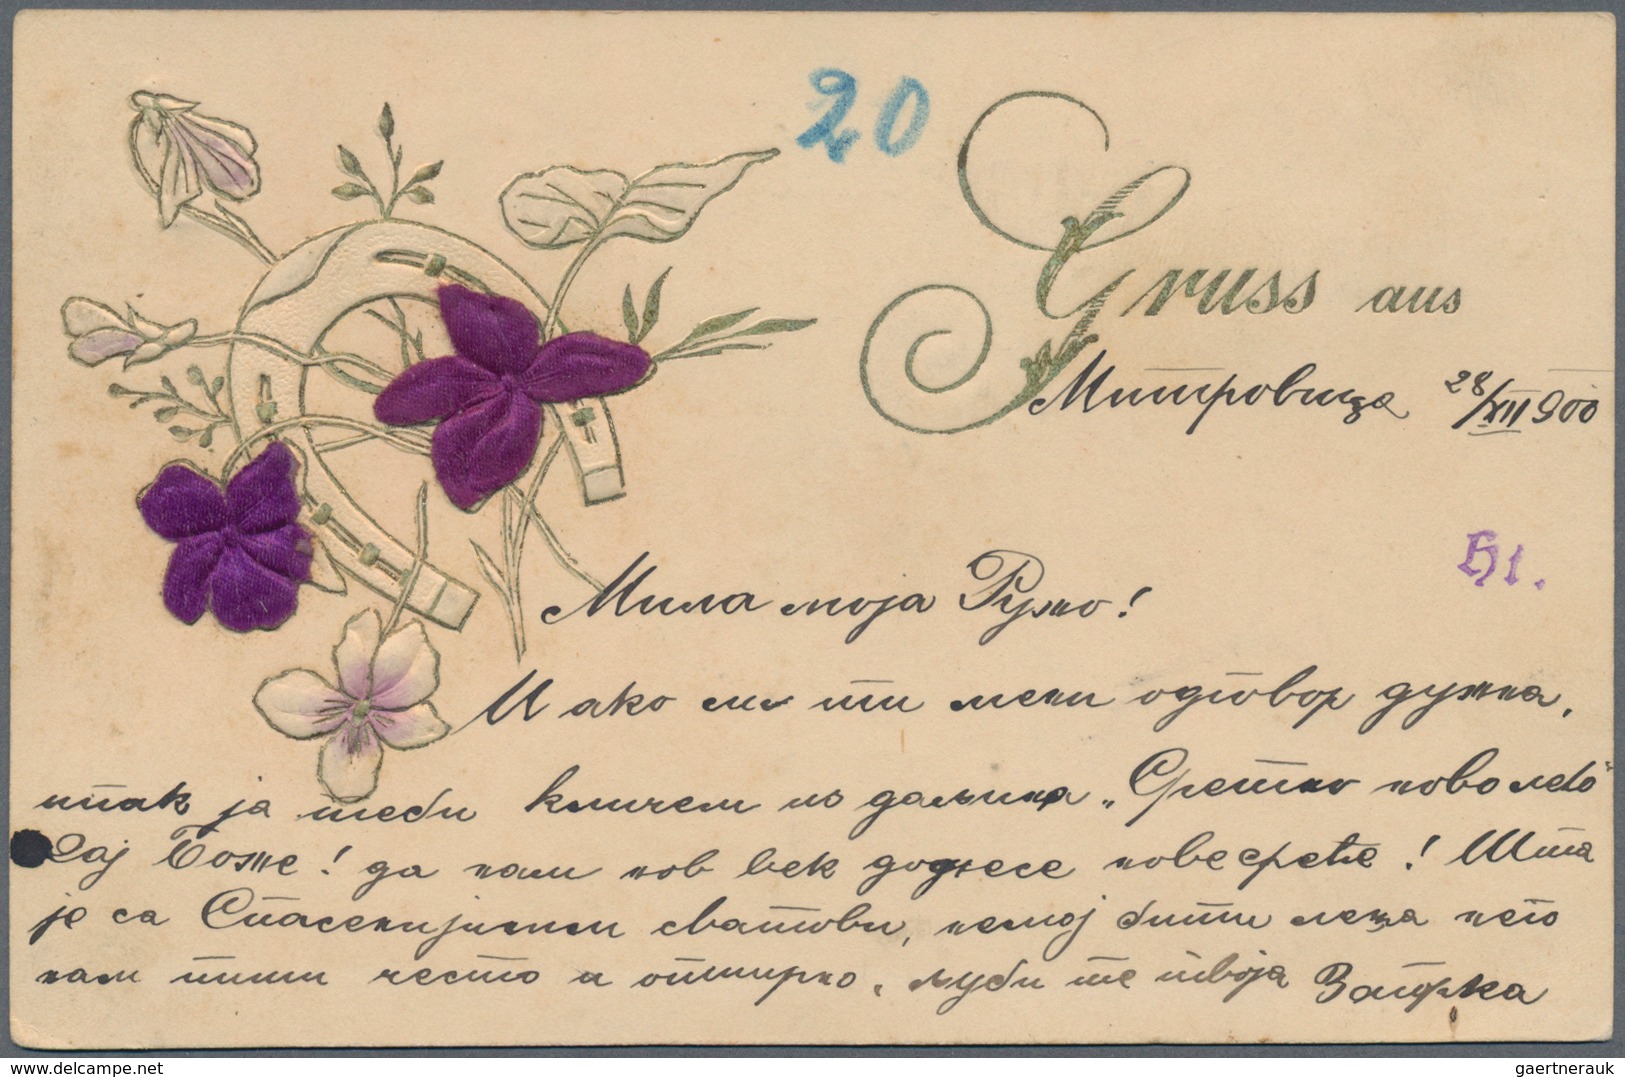 20
Gruss aus
Митровица 28/XII 900
H1.
Мила моја Ружо!
И ако си ти мени одговор дужна,
ипак ја теби кличем из даљина „Сретно ново лето"
Дај Боже! да нам нов век донесе нове среће! Шта
је са Спасенијиним сватови, немој бити лења него
нам пиши често и опширно. љуби те твоја Заорка
delcampe.net
gaertnerauk